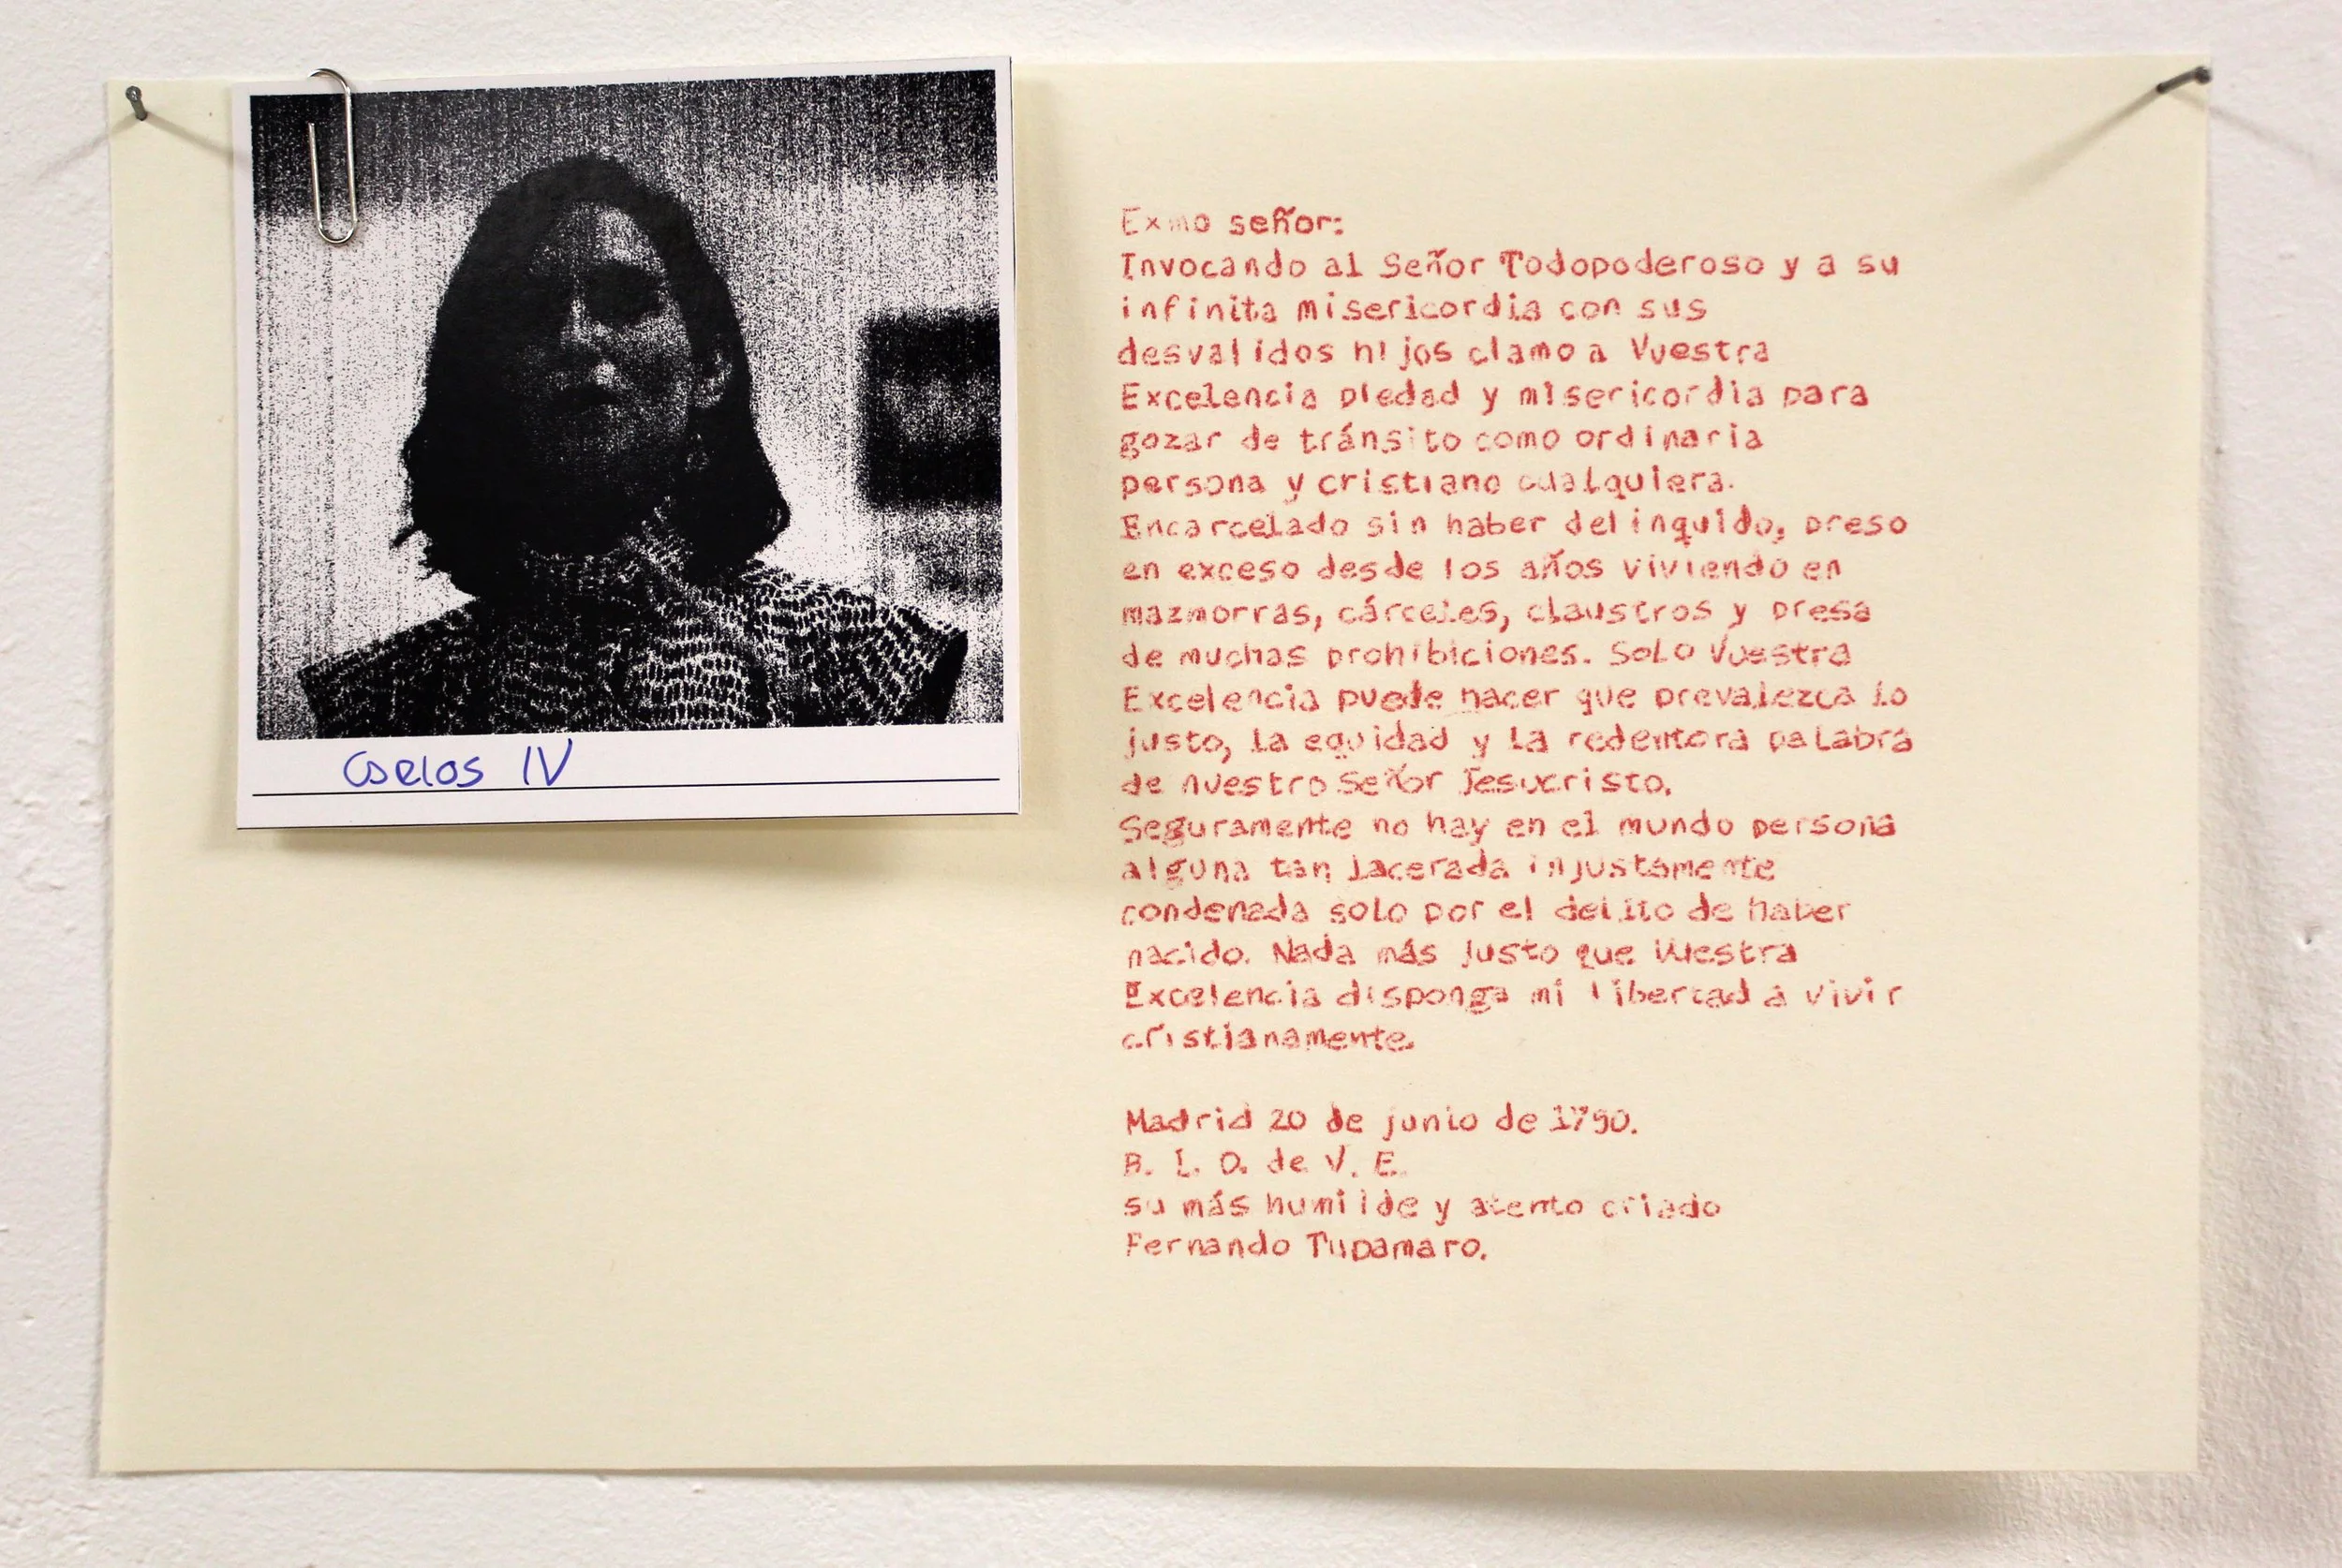 Exmo señor:
Invocando al Señor Todopoderoso y a su
infinita misericordia con sus
desvalidos hijos clamo a Vuestra
Excelencia piedad y misericordia para
gozar de tránsito como ordinaria
persona y cristiano cualquiera.
Encarcelado sin haber delinquido, preso
en exceso desde los años viviendo en
mazmorras, cárceles, claustros y presa
de muchas prohibiciones. Solo Vuestra
Excelencia puede hacer que prevalezca lo
justo, la equidad y la redentora palabra
de nuestro Señor Jesucristo.
Seguramente no hay en el mundo persona
alguna tan lacerada injustamente
condenada solo por el delito de haber
nacido. Nada más justo que Vuestra
Excelencia disponga mi libertad a vivir
cristianamente.
Madrid 20 de junio de 1790.
B. L. P. de V. E.
su más humilde y atento criado
Fernando Tupamaro.
IV